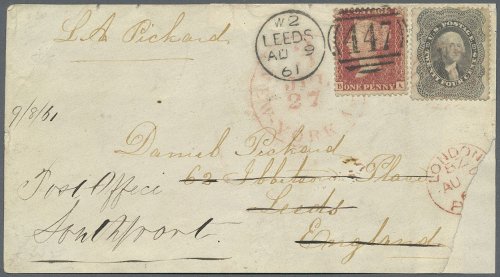 L A Pickard
W2
LEEDS
AU 9
61
447
ONE PENNY
U.S. POSTAGE
27
YORK
9/8/61
LONDON
AU
Daniel Pickard
62 Ibbetson Place
Post Office
Leeds
Southport
England